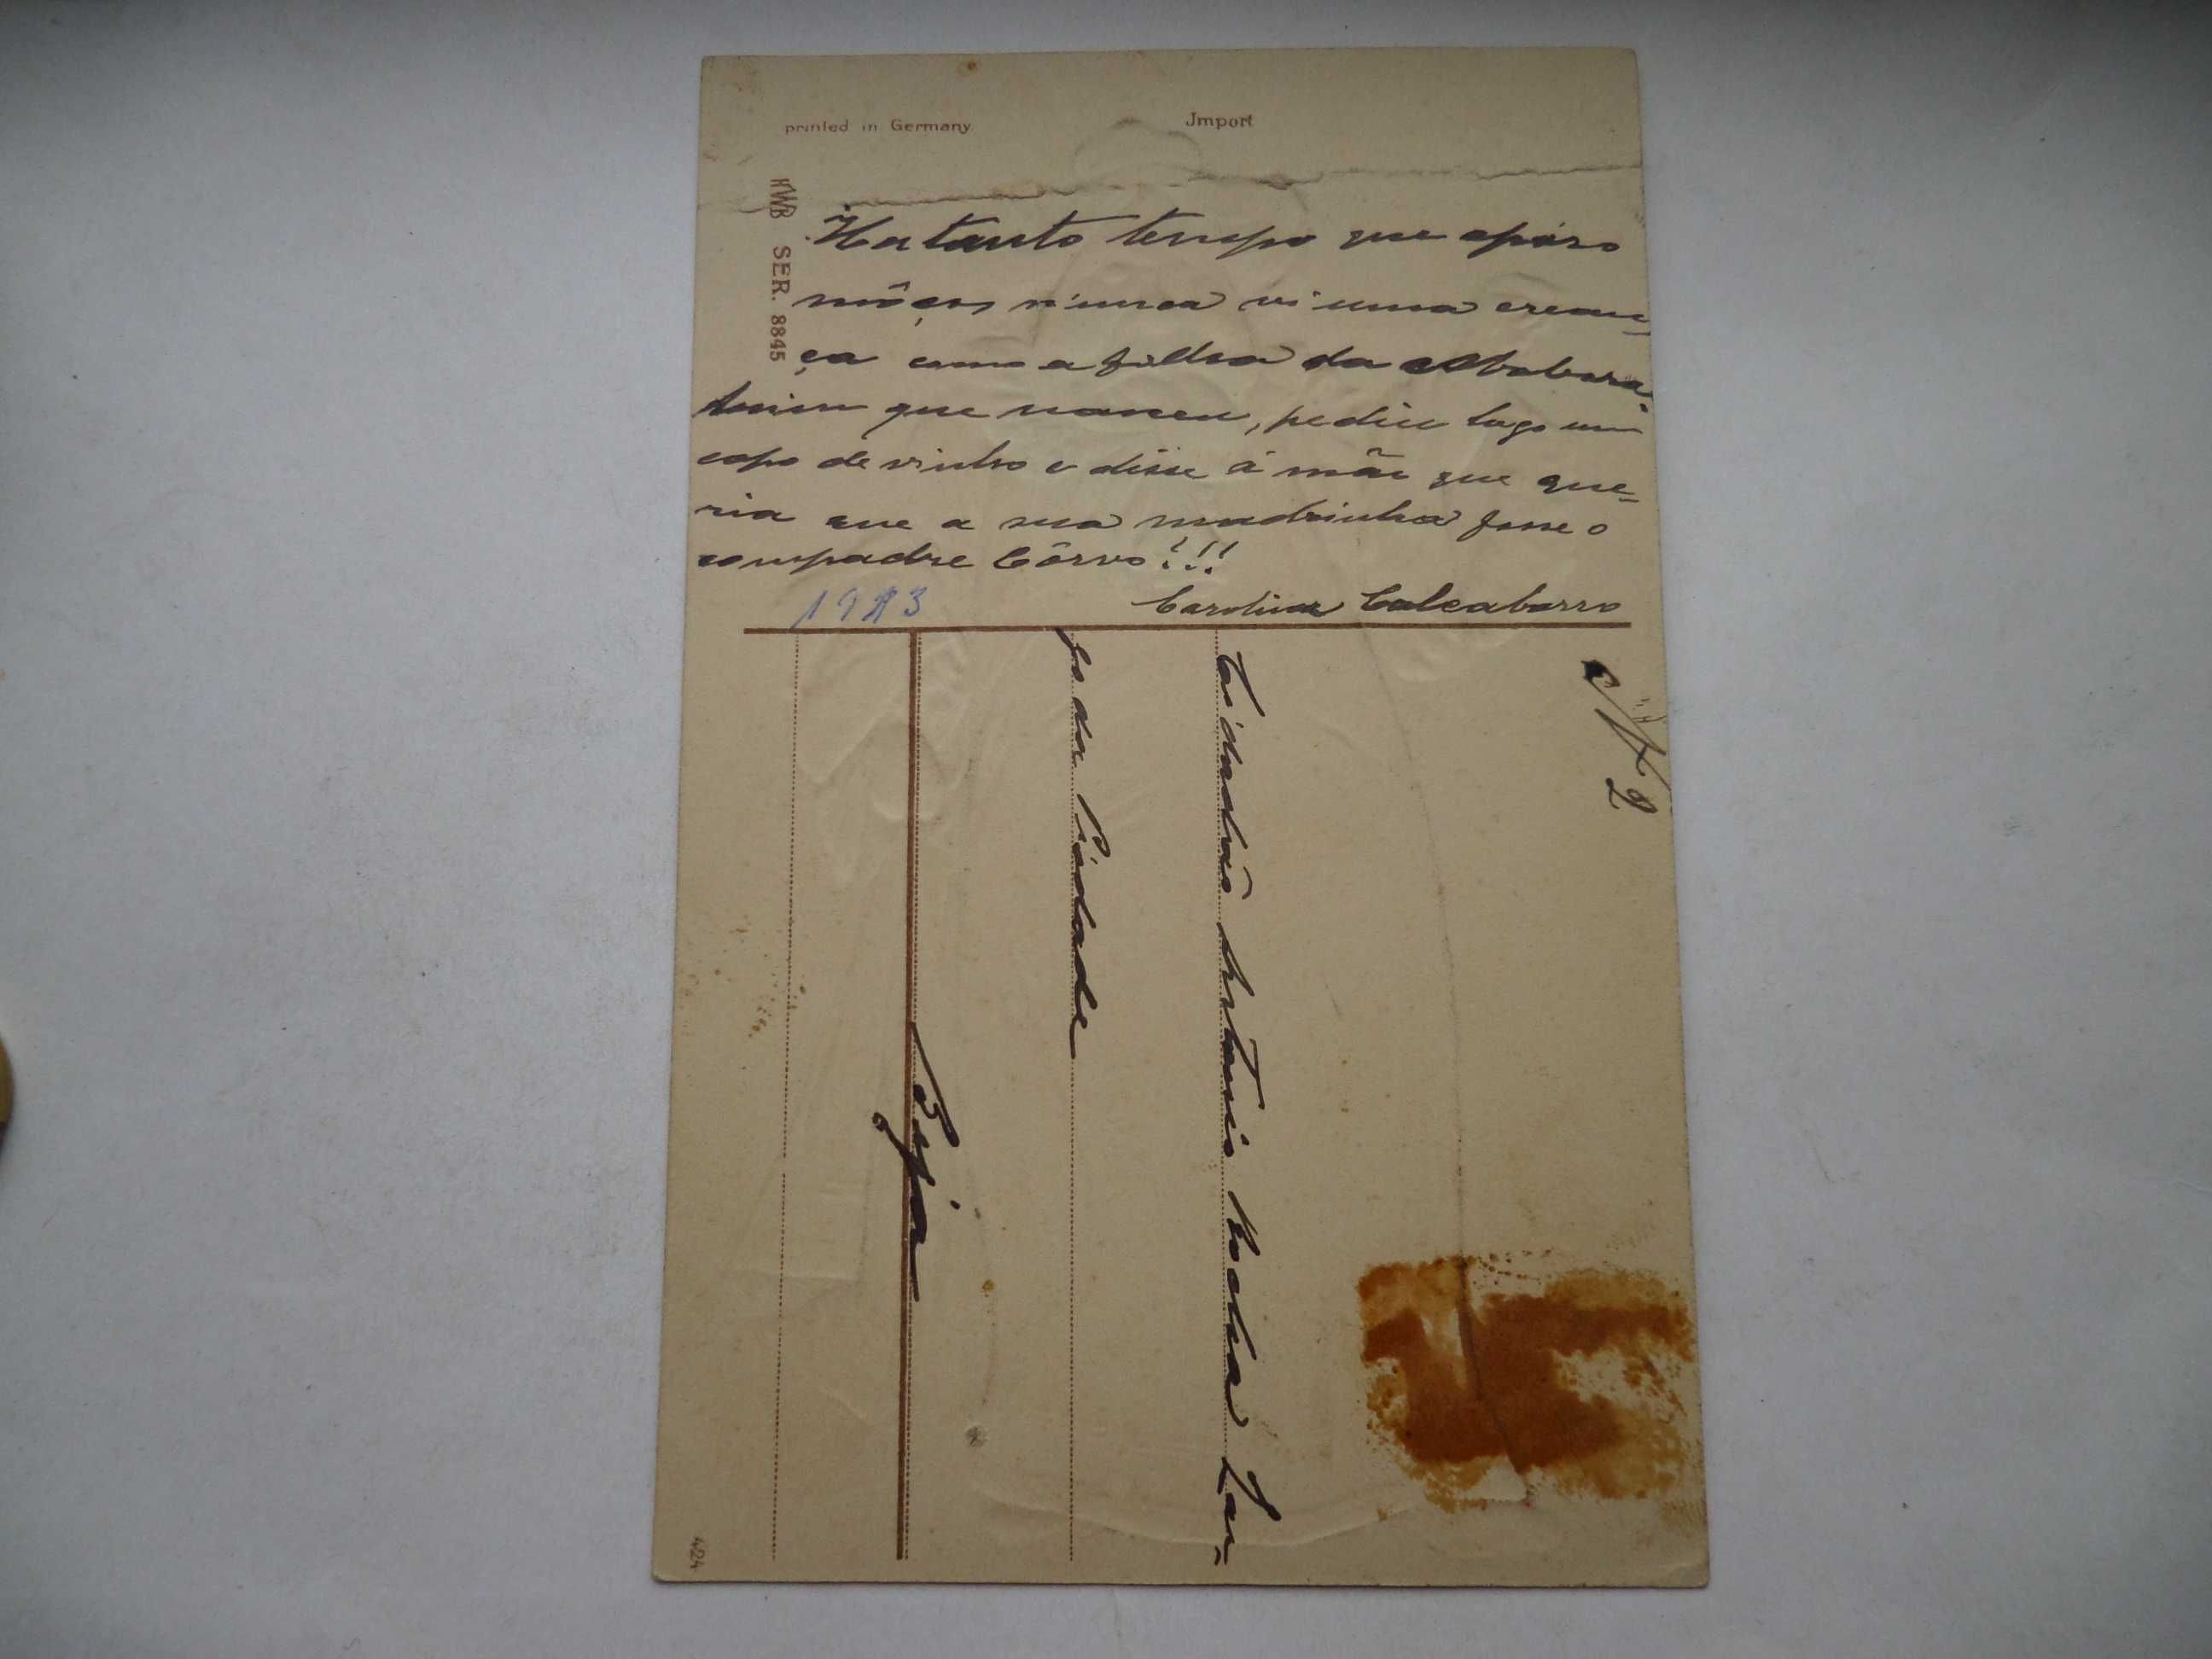 printed in Germany
Jmport
KWB SER. 8845
Ha tanto tempo que apáro
môços nunca vi uma crean-
ça como a filha da
que nasceu, pediu logo um
copo de vinho e disse á mãe que que-
ria que a sua madrinha fosse o
compadre Côrvo!!!
1913
Carolina Calcabarro
Nº 2
Cidadão Antonio Rocha Lar-
go da Piedade
Beja
424